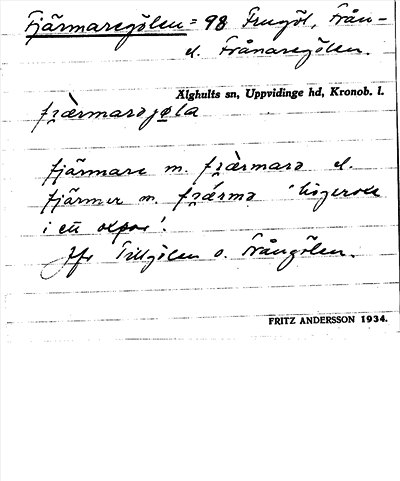 Fjärmaregölen = 98 Frugöl, Från-
el. Frånaregölen.
Älghults sn, Uppvidinge hd, Kronob. l.
fjærmarəjøla
fjärmare m. fjærmarə el.
fjärmer m. fjærmə 'högeroxe
i ett oxpar'.
Jfr Tillgölen o. Frångölen.
FRITZ ANDERSSON 1934.